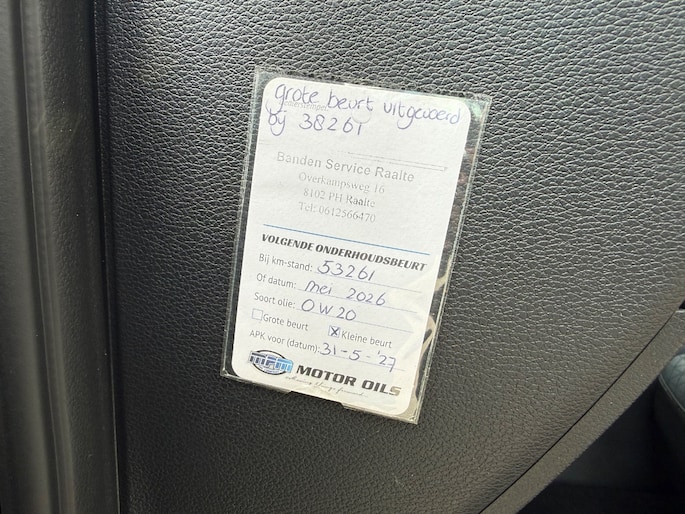 grote beurt uitgevoerd
bij 38261
Banden Service Raalte
Overkampsweg 16
8102 PH Raalte
Tel: 0612566470
VOLGENDE ONDERHOUDSBEURT
Bij km-stand: 53261
Of datum: mei 2026
Soort olie: 0W20
Grote beurt Kleine beurt
APK voor (datum): 31-5-'27
MPM MOTOR OILS